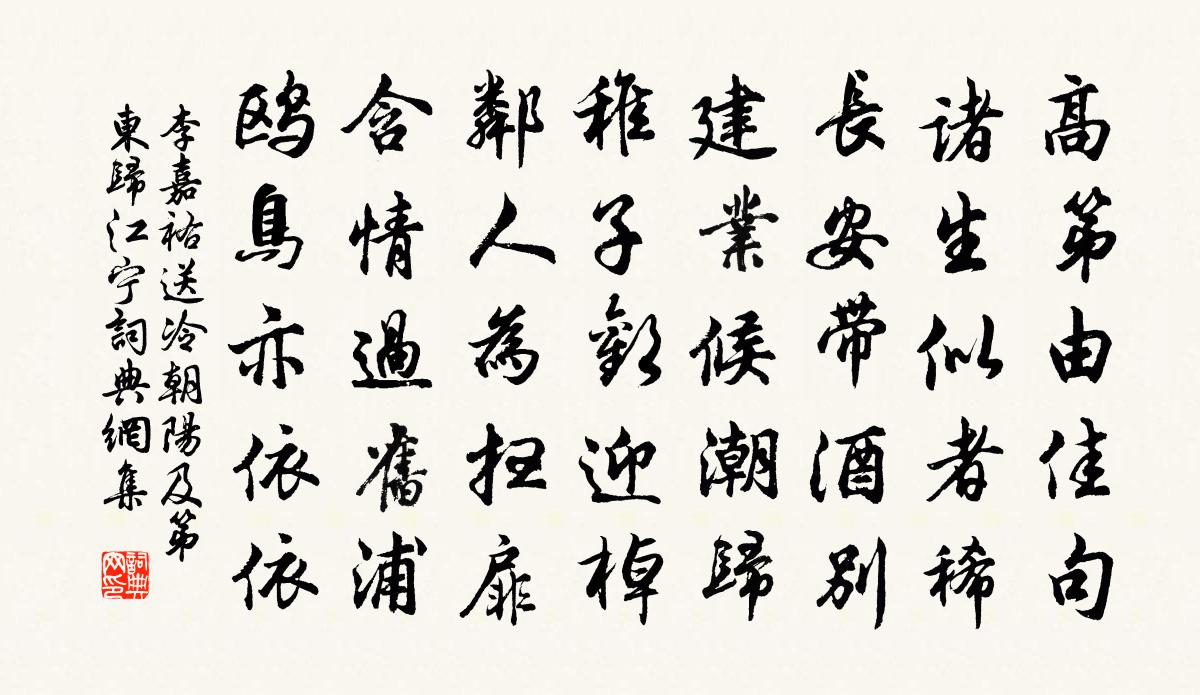 高第由佳句
諸生似者稀
長安帶酒別
建業候潮歸
稚子歡迎棹
鄰人為掃扉
含情過舊浦
鷗鳥亦依依
李嘉祐送冷朝陽及第
東歸江宁詞典網集
詞典
网印